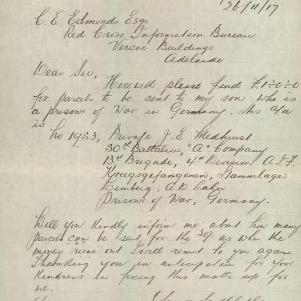 26/11/17
C. E. Edmonds Esq.
Red Cross Information Bureau
Verco Buildings
Adelaide
Dear Sir,
Herewith please find £1-0-0
for parcels to be sent to my son who is
a prisoner of War in Germany. His a/d
is No 1933, Private J. E. Medhurst
50th Battalion, "A" Company
13th Brigade, 4th Division A.I.F.
Kriegsgefangenen, Stammlager
Limburg, A.D. Lahn
Prisoner of War, Germany.
Will you kindly inform me about how many
parcels can be sent, for the as when the
money runs out I will remit to you again
Thanking you in anticipation for your
kindness in fixing this matter up for
me.